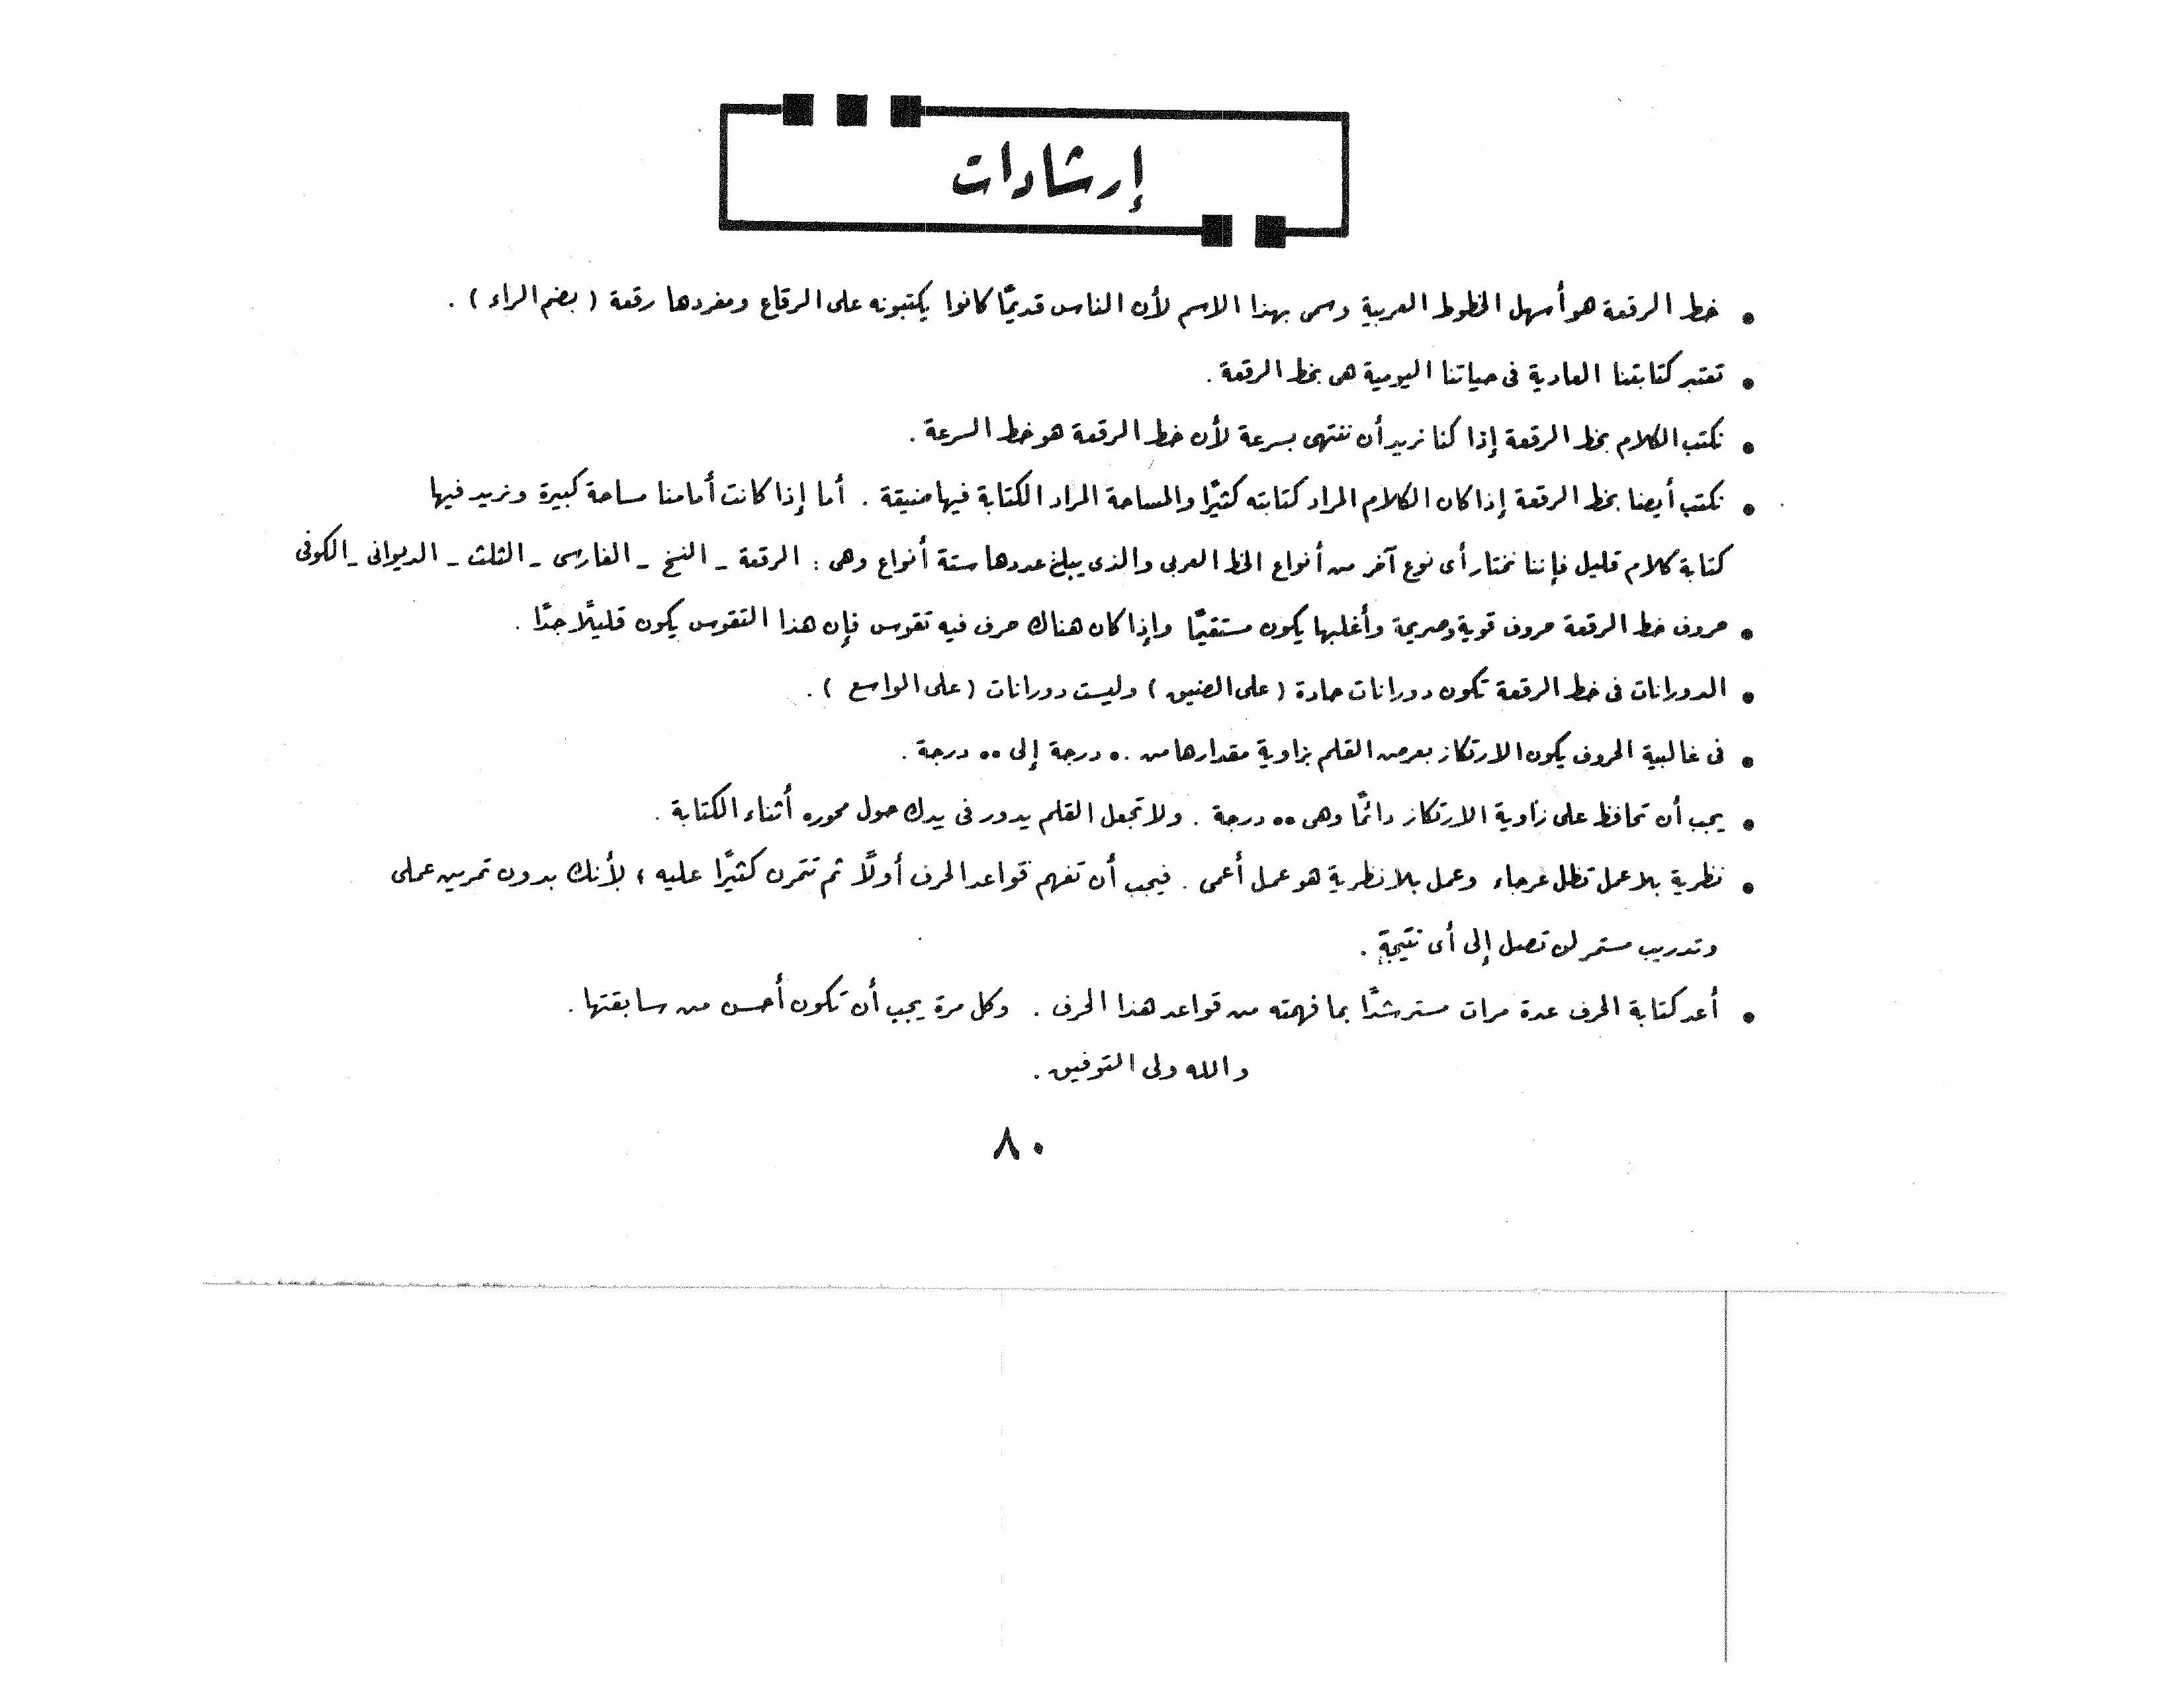 إرشادات
• خط الرقعة هو أسهل الخطوط العربية وسمى بهذا الاسم لأن الناس قديمًا كانوا يكتبونه على الرقاع ومفردها رقعة ( بضم الراء ) .
• تعتبر كتابتنا العادية فى حياتنا اليومية هى بخط الرقعة .
• نكتب الكلام بخط الرقعة إذا كنا نريد أن ننتهى بسرعة لأن خط الرقعة هو خط السرعة .
• نكتب أيضا بخط الرقعة إذا كان الكلام المراد كتابته كثيرًا والمساحة المراد الكتابة فيها ضيقة . أما إذا كانت أمامنا مساحة كبيرة ونريد فيها
كتابة كلام قليل فإننا نختار أى نوع آخر من أنواع الخط العربى والذى يبلغ عددها ستة أنواع وهى : الرقعة - النسخ - الفارسى - الثلث - الديوانى - الكوفى
• حروف خط الرقعة حروف قوية وصريحة وأغلبها يكون مستقيمًا وإذا كان هناك حرف فيه تقوس فإن هذا التقوس يكون قليلًا جدًا .
• الدورانات فى خط الرقعة تكون دورانات حادة ( على الضيق ) وليست دورانات ( على الواسع ) .
• فى غالبية الحروف يكون الارتكاز بعرض القلم بزاوية مقدارها من ٥٠ درجة إلى ٥٥ درجة .
• يجب أن تحافظ على زاوية الارتكاز دائمًا وهى ٥٥ درجة . ولا تجعل القلم يدور فى يدك حول محوره أثناء الكتابة .
• نظرية بلا عمل تظل عرجاء وعمل بلا نظرية هو عمل أعمى . فيجب أن تفهم قواعد الحرف أولًا ثم تتمرن كثيرًا عليه ؛ لأنك بدون تمرين عملى
وتدريب مستمر لن تصل إلى أى نتيجة .
• أعد كتابة الحرف عدة مرات مسترشدًا بما فهمته من قواعد هذا الحرف . وكل مرة يجب أن تكون أحسن من سابقتها .
والله ولى التوفيق .
٨٠